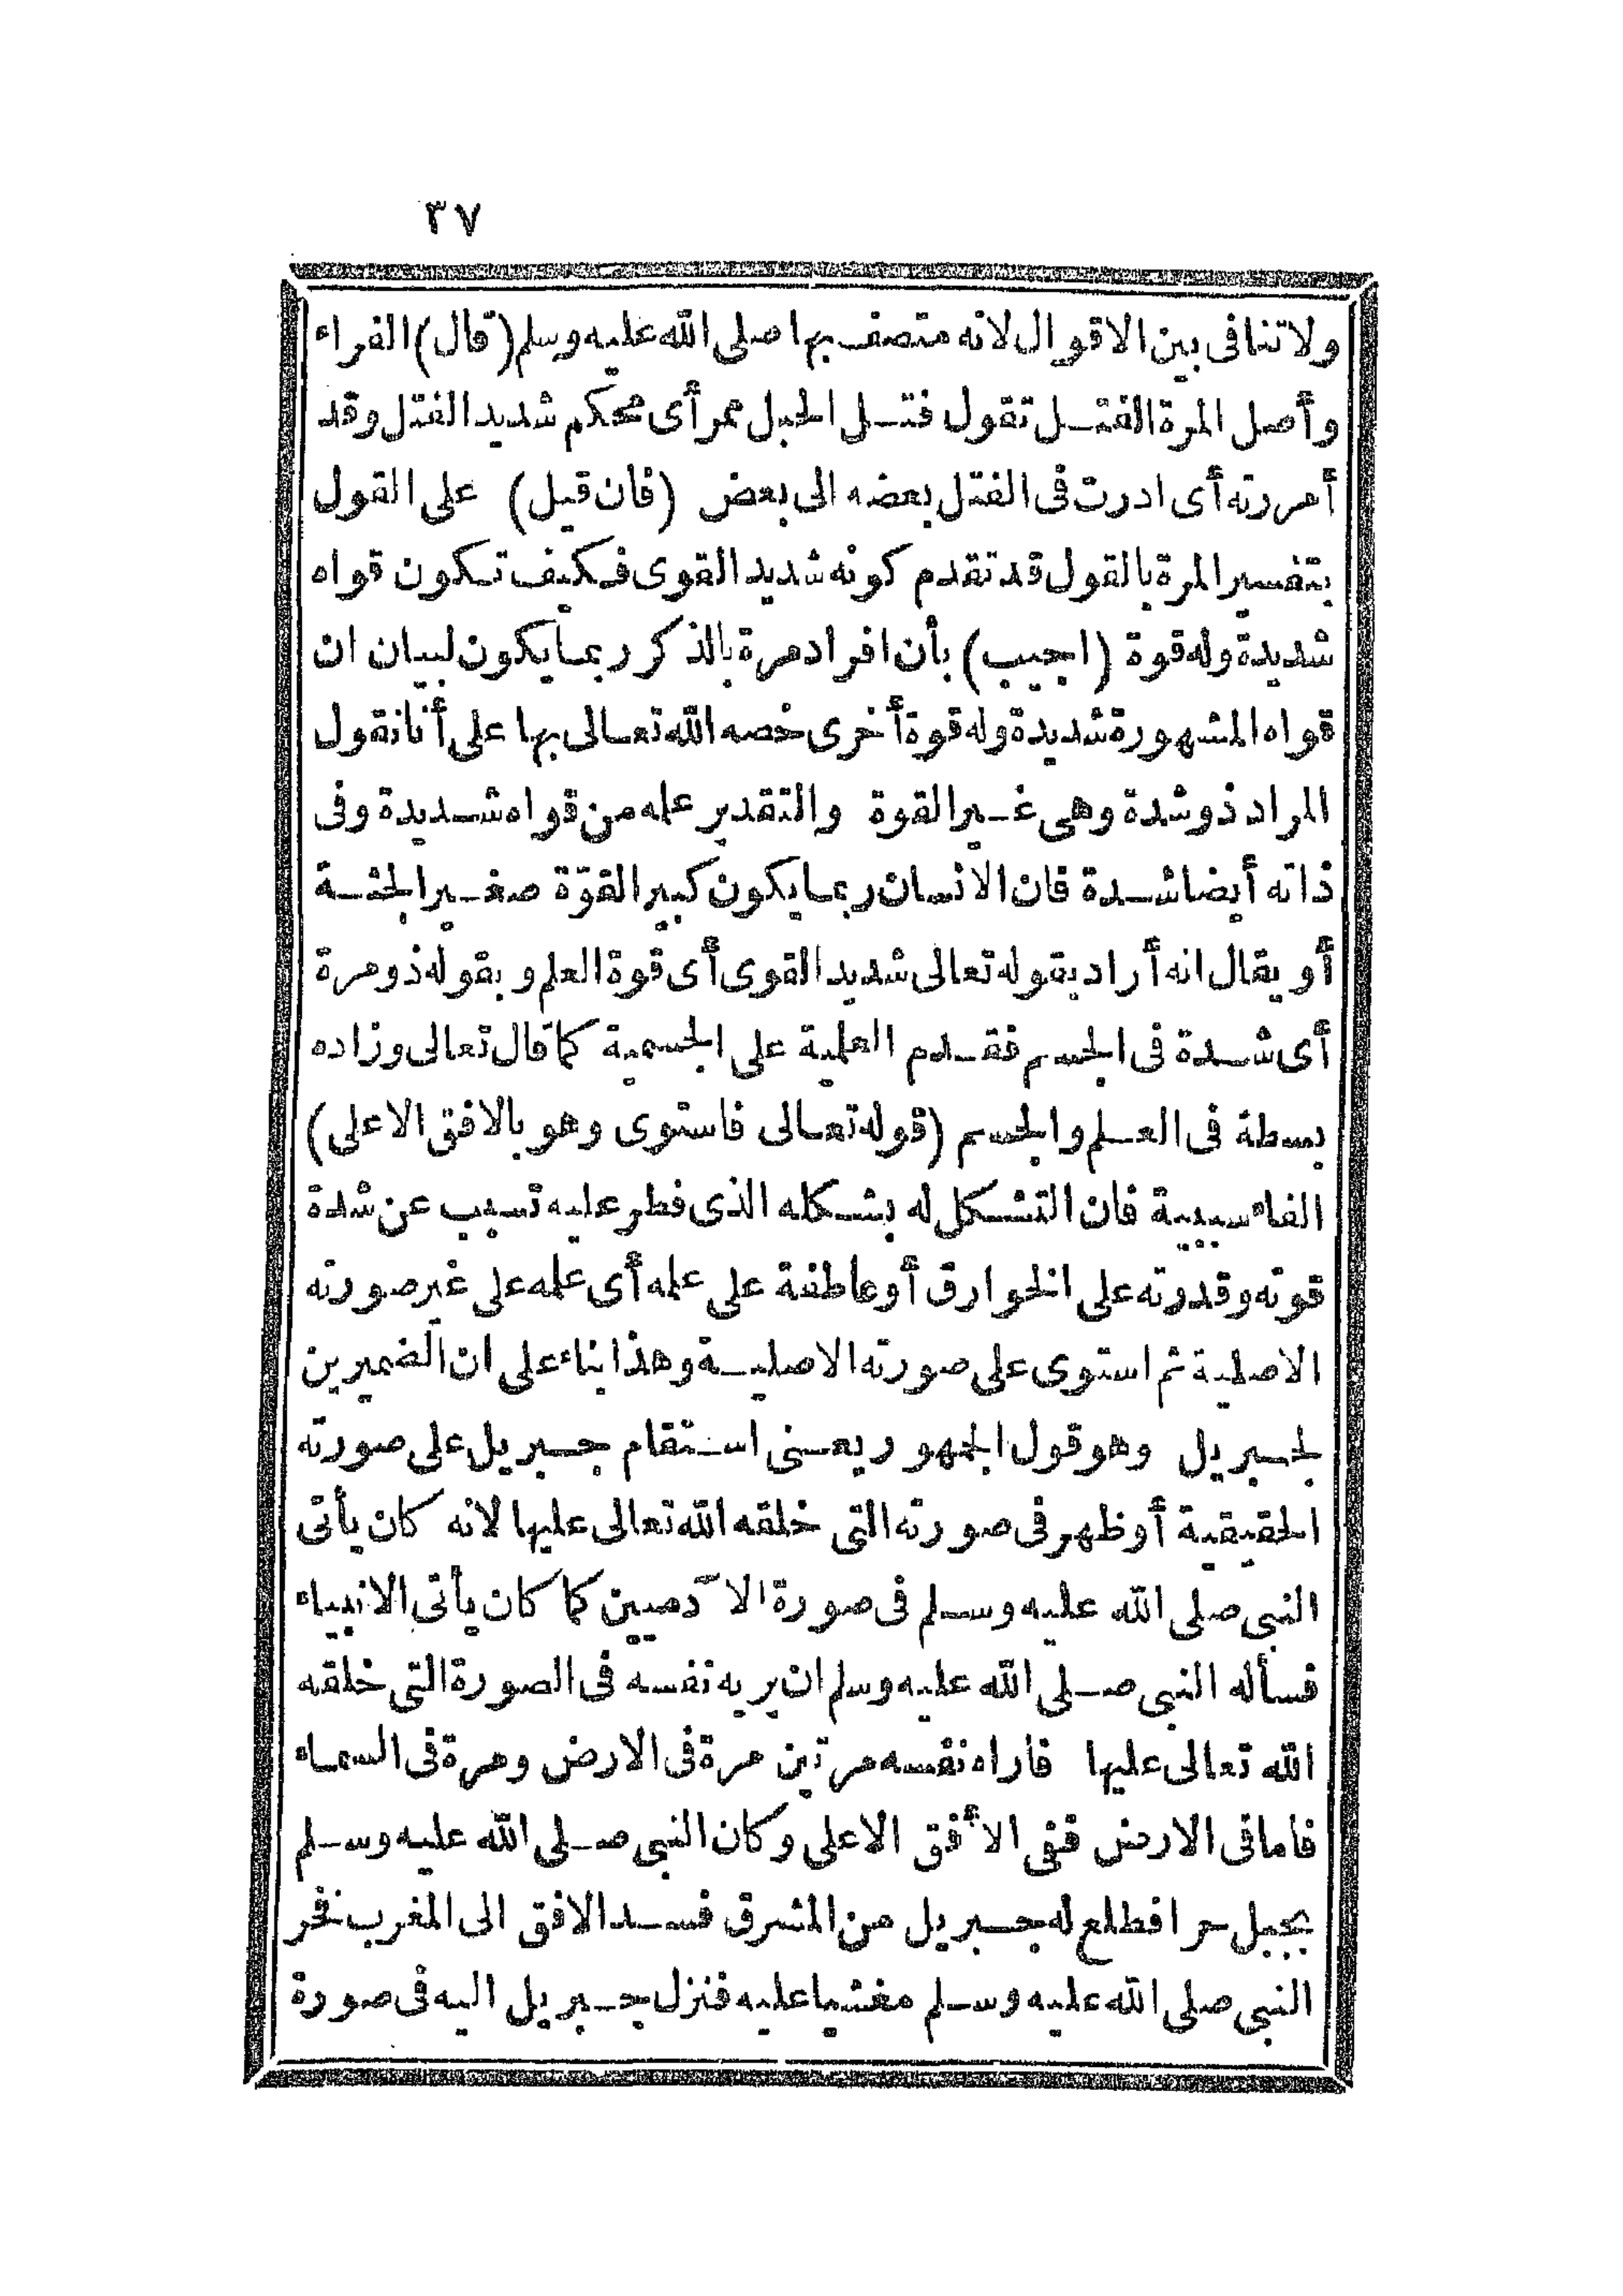 ٣٧
ولا تنافى بين الاقوال لانه متصف بها صلى الله عليه وسلم (قال) الفراء
وأصل المرة الفتل تقول فتل الحبل ممر أى محكم شديد الفتل وقد
أمررته أى ادرت فى الفتل بعضه الى بعض (فان قيل) على القول
بتفسير المرة بالقول قد تقدم كونه شديد القوى فكيف تكون قواه
شديدة وله قوة (اجيب) بأن افراد مرة بالذكر ربما يكون لبيان ان
قواه المشهورة شديدة وله قوة أخرى خصه الله تعالى بها على أنا نقول
المراد ذو شدة وهى غير القوة والتقدير علمه من قواه شديدة وفى
ذاته أيضا شدة فان الانسان ربما يكون كبير القوّة صغير الجثة
أو يقال انه أراد بقوله تعالى شديد القوى أى قوة العلم و بقوله ذو مرة
أى شدة فى الجسم فقدم العلمية على الجسمية كما قال تعالى وزاده
بسطة فى العلم والجسم (قوله تعالى فاستوى وهو بالافق الاعلى)
الفاء سببية فان التشكل له بشكله الذى فطر عليه تسبب عن شدة
قوته وقدرته على الخوارق أو عاطفة على علمه أى علمه على غير صورته
الاصلية ثم استوى على صورته الاصلية وهذا بناء على ان الضميرين
لجبريل وهو قول الجمهور يعنى استقام جبريل على صورته
الحقيقية أو ظهر فى صورته التى خلقه الله تعالى عليها لانه كان يأتى
النبى صلى الله عليه وسلم فى صورة الآدميين كما كان يأتى الانبياء
فسأله النبى صلى الله عليه وسلم ان يريه نفسه فى الصورة التى خلقه
الله تعالى عليها فأراه نفسه مرتين مرة فى الارض ومرة فى السماء
فاما فى الارض ففى الأفق الاعلى وكان النبى صلى الله عليه وسلم
بجبل حرا فطلع له جبريل من المشرق فسد الافق الى المغرب فخر
النبى صلى الله عليه وسلم مغشيا عليه فنزل جبريل اليه فى صورة